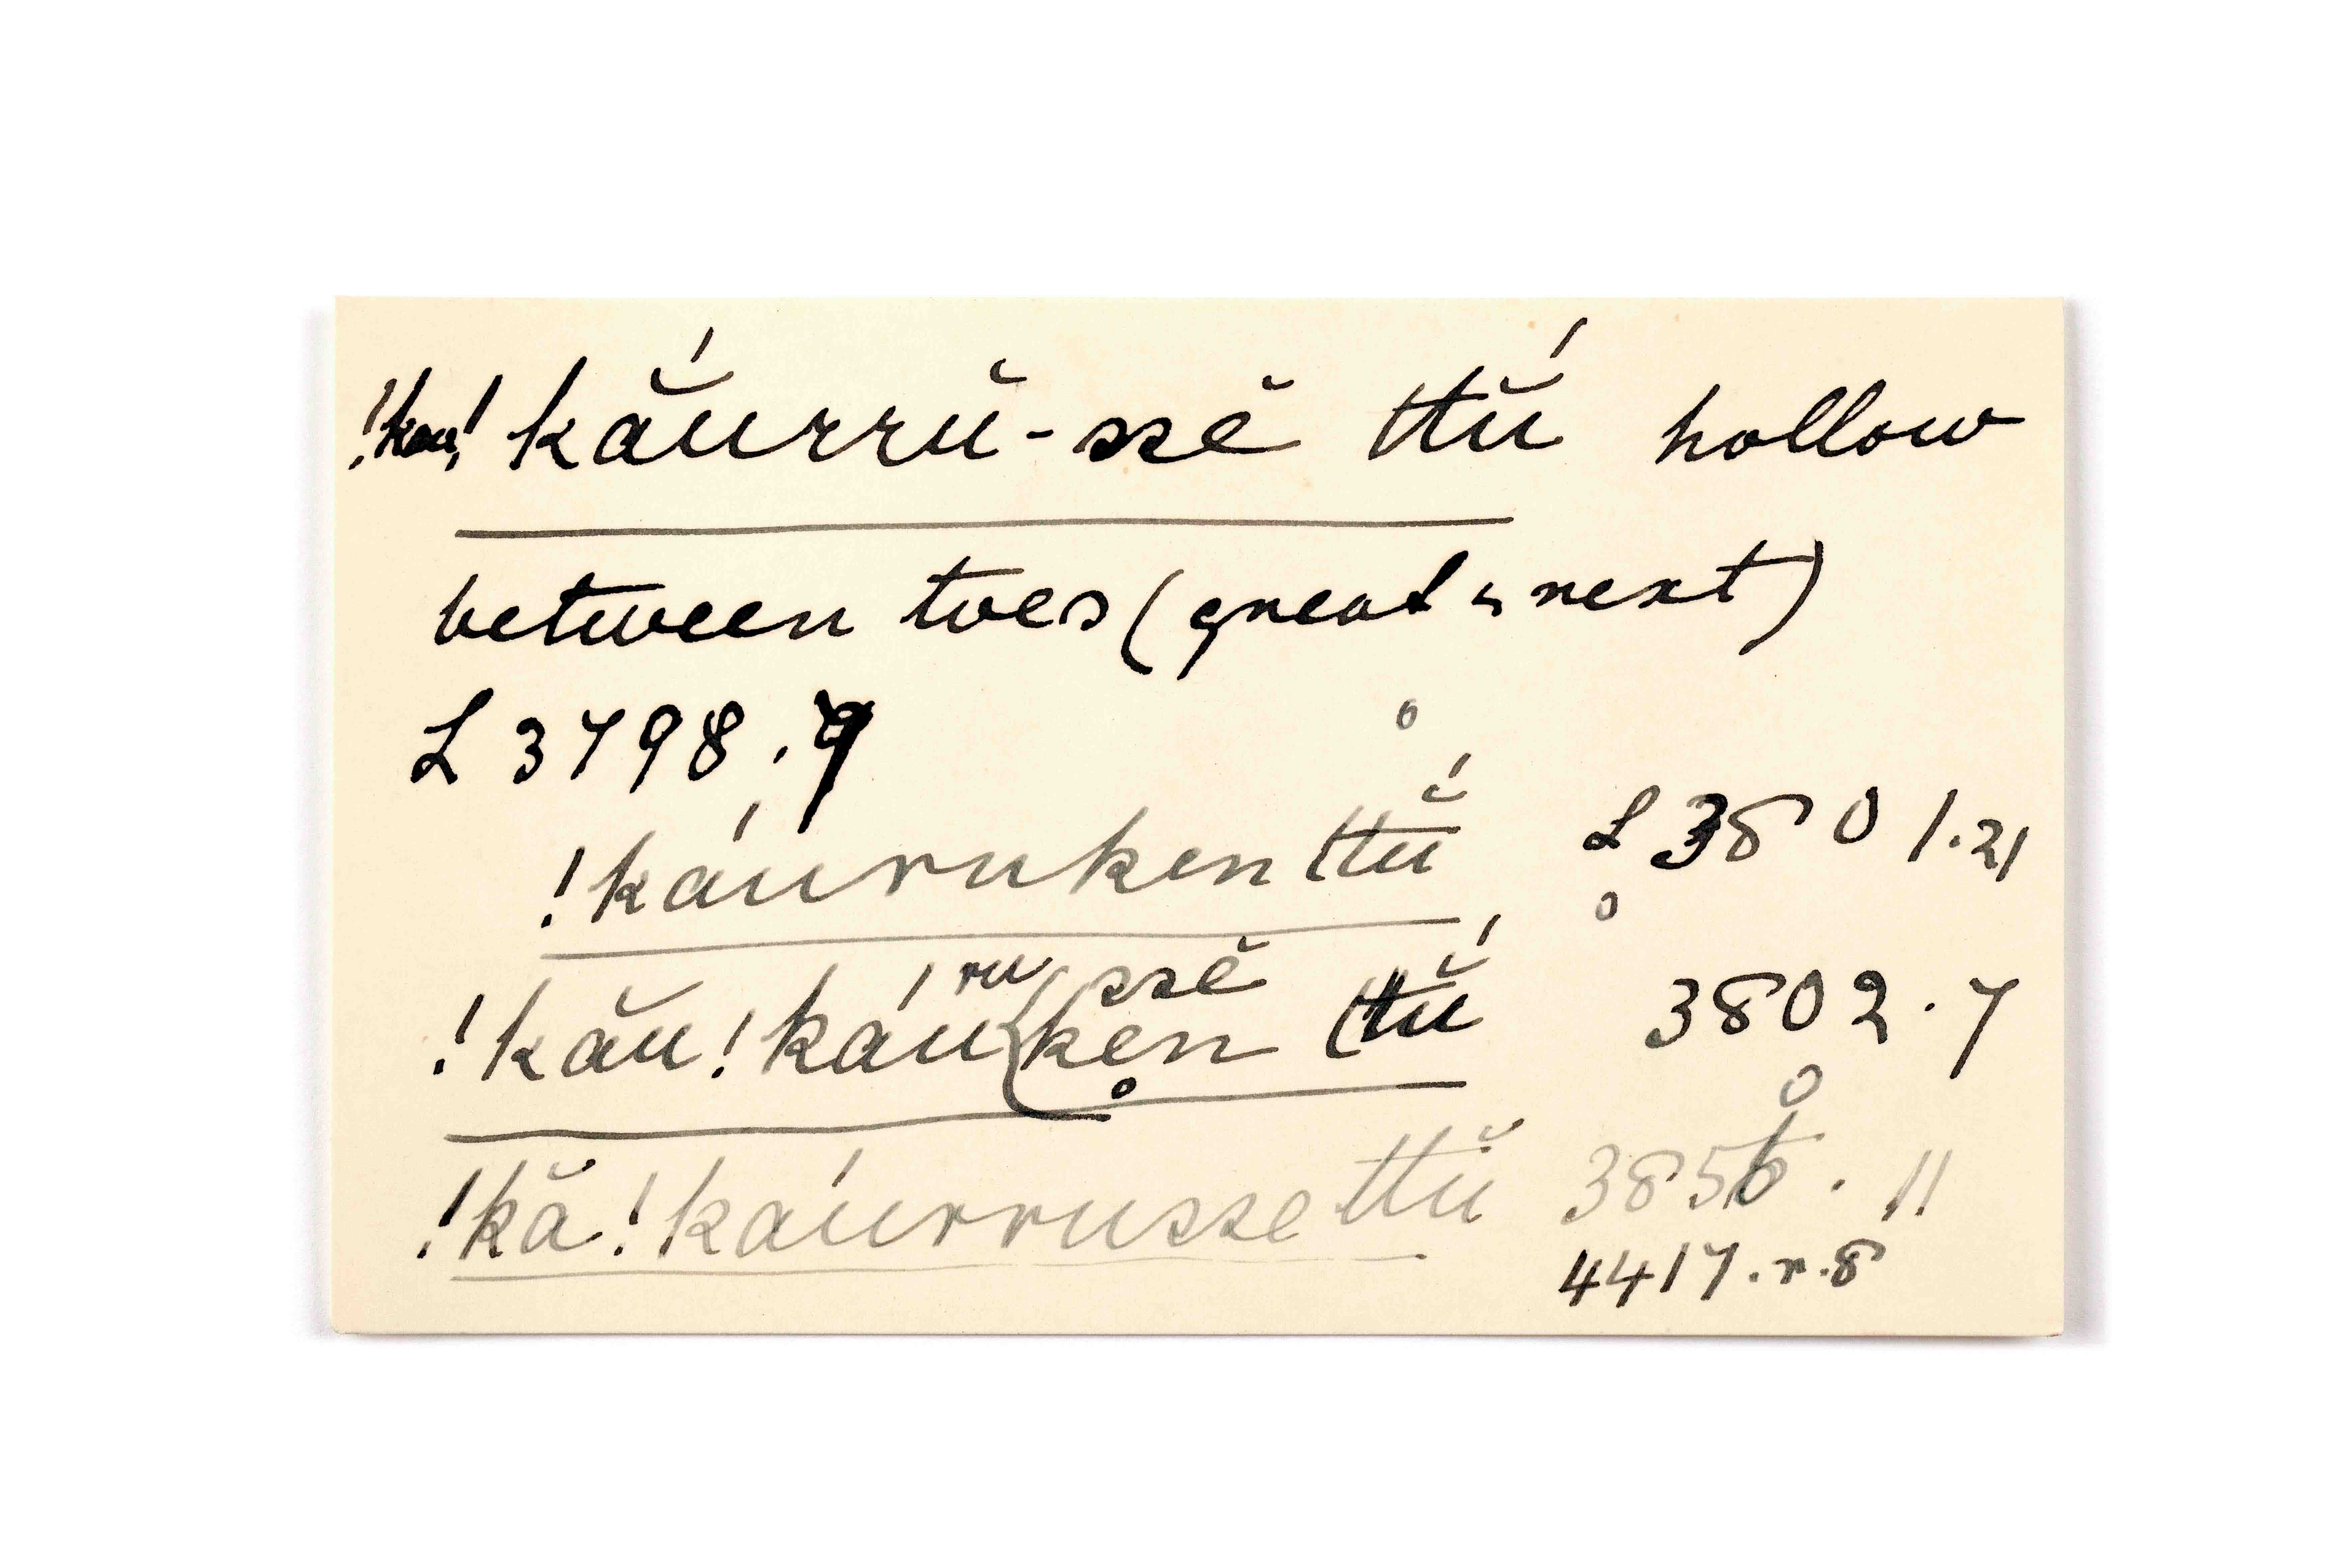 !kau!kắurrŭ-ssĕ ttŭ́ hollow
between toes (great & next)
L 3798.9
!káuruken ttŭ́ L 3801.21
!kău!káuruken ssĕ ttŭ́ 3802.7
!kă!káurrusse ttŭ 3856.11
4417.r.8